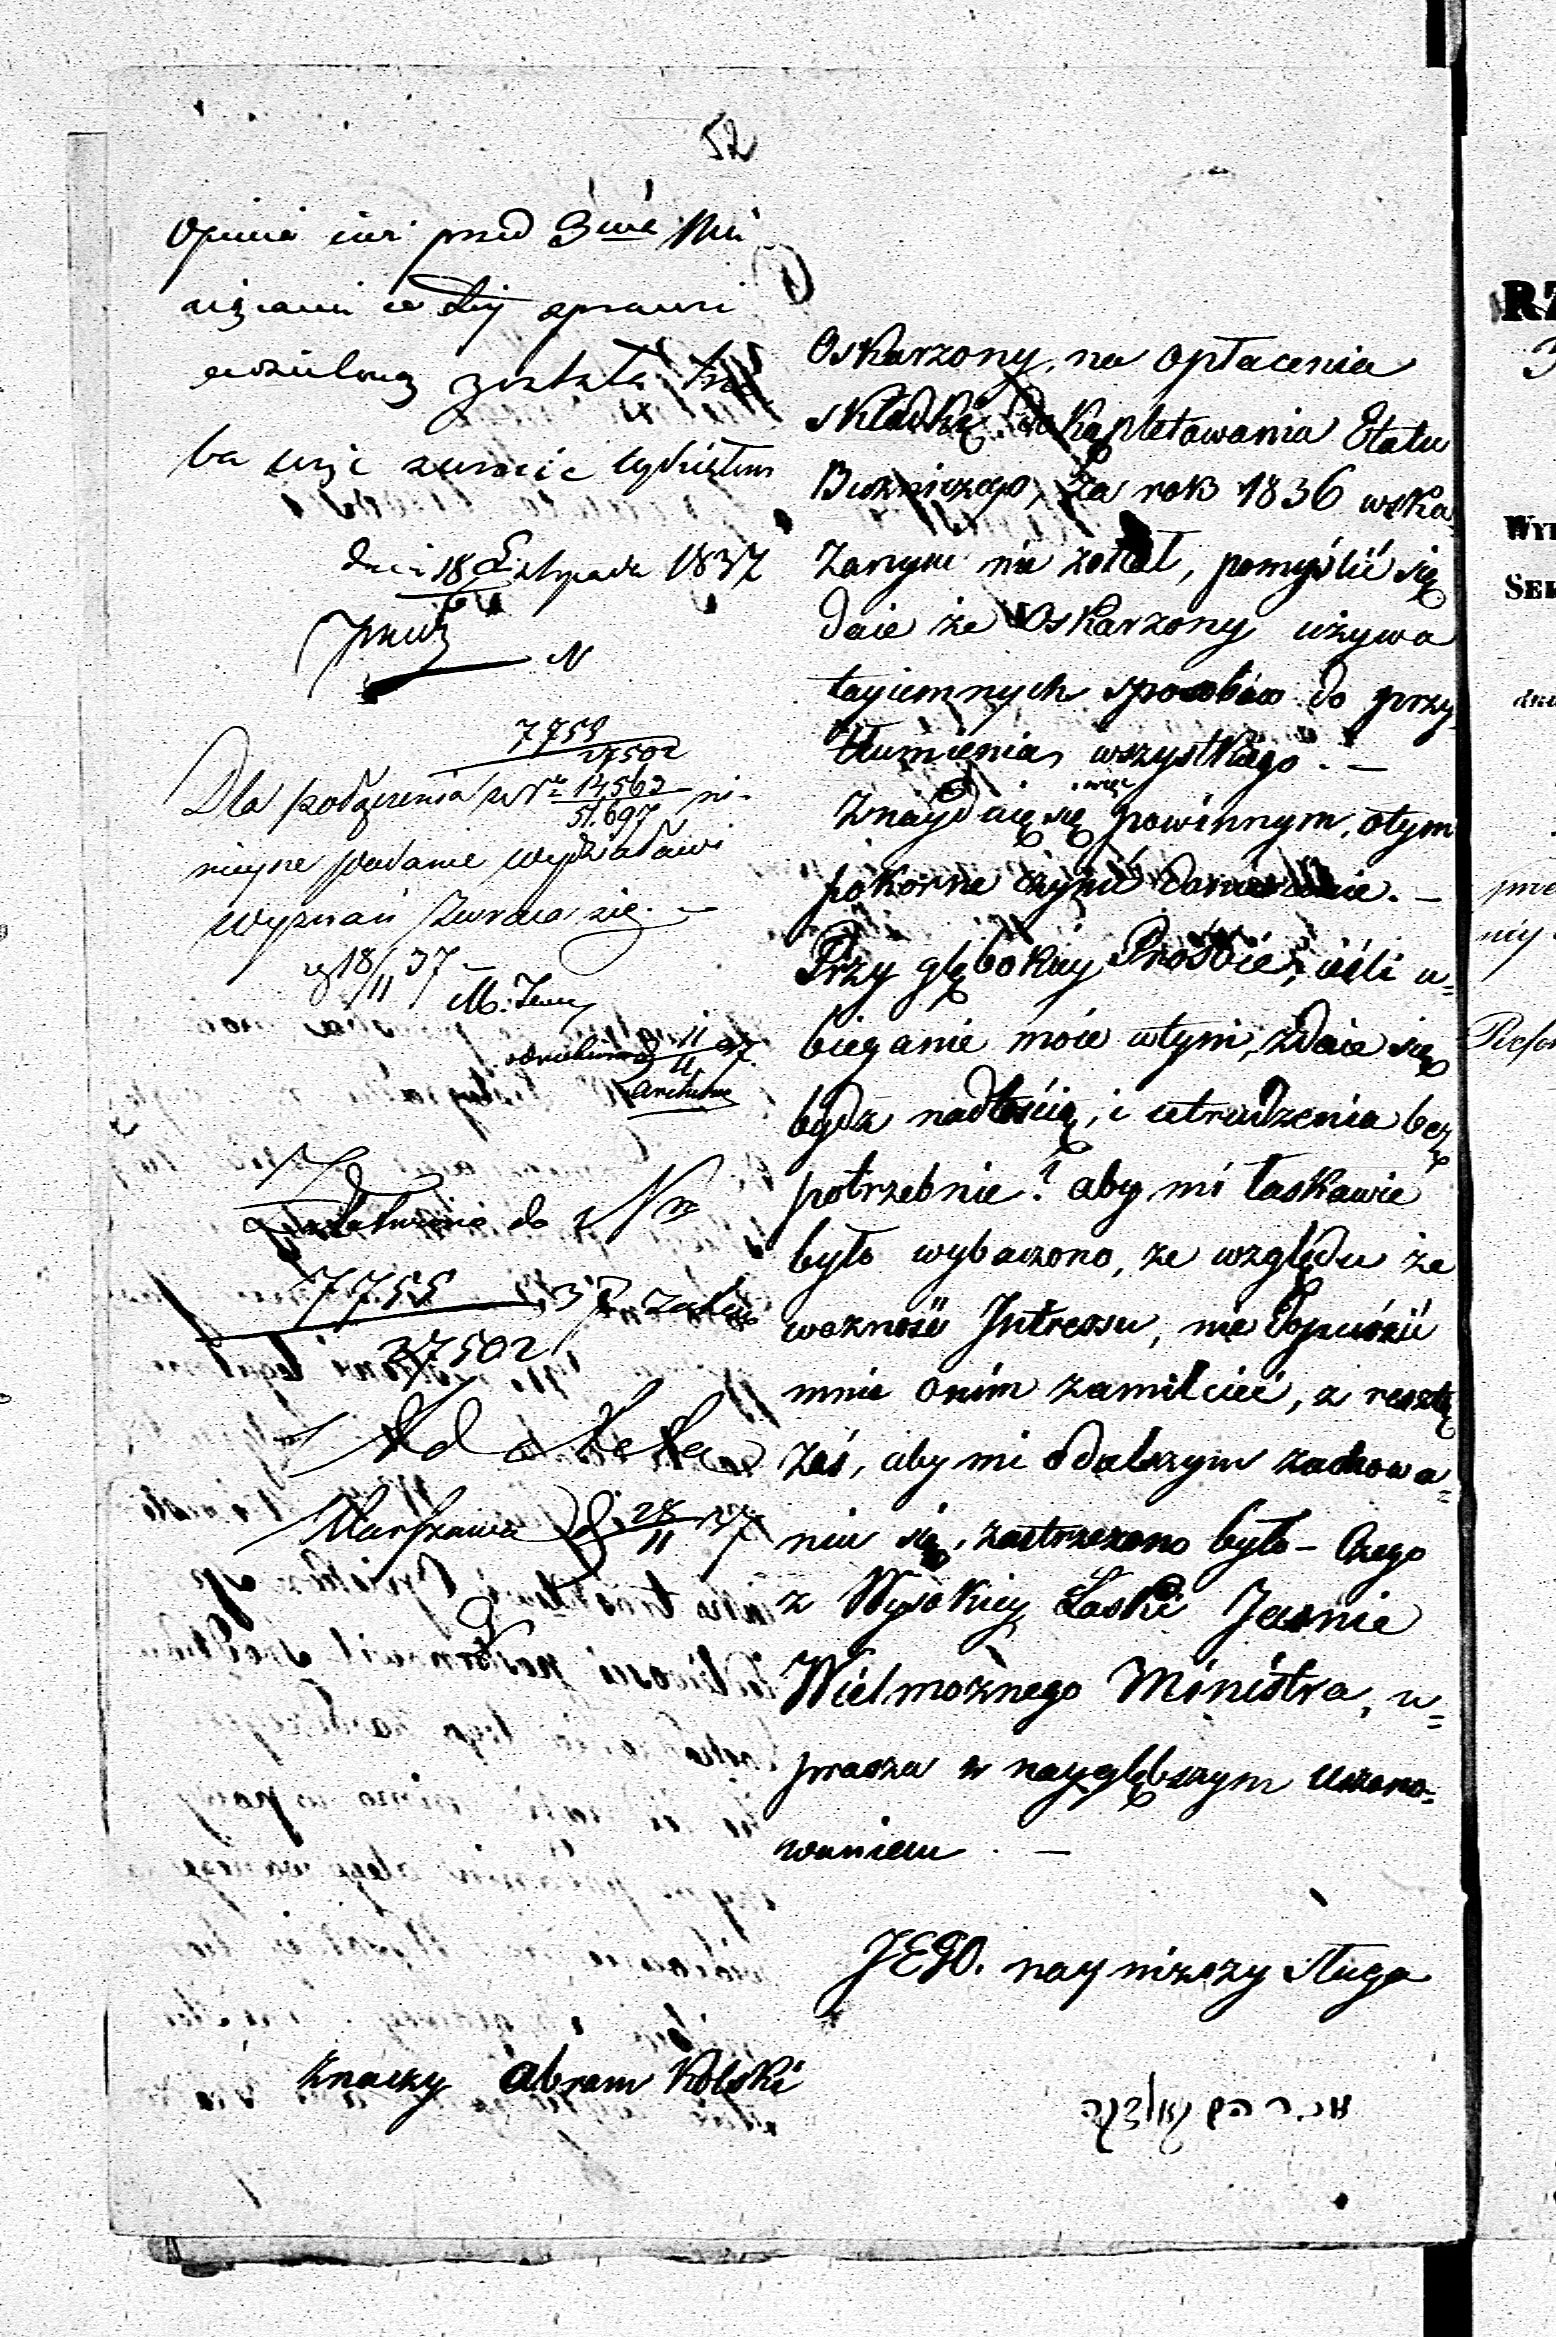 52
Opinia już przed 3ma
w tej sprawie
udzieloną została trze
ba więc zwrócić
dnia 18 Listopada 1837
7755
27502
Dla połączenia z Nr 14,562 ni-
51.697
nieysze podanie Wydziałowi
Wyznań zwraca się. —
18/11 37
11/11 37
Załatwiono do Nr
7755 37
27502
Ad acta
Warszawa d. 28/11 37
Oskarzony, na opłacenia
składki do kąpletowania Etatu
Bużniczego, za rok 1836 wska
zanym nie został, pomyślić się
daie że Oskarzony używa
tayiemnych sposobów do przy
tłumienia wszystkiego. —
Znayduię się więc powinnym, otym
pokorne czynić doniesienie. —
Przy głębokiey Prośbie, ieśli u=
bieganie moie wtym, zdaie się
bydź nadtością, i utrudzenia bez
potrzebnie? aby mi łaskawie
było wybaczono, ze względu że
ważność Intressu, nie dopuścić
mnie onim zamilcieć, z resztą
zaś, aby mi o dalszym zachowa=
niu się, zastrzeżono było – Czego
z Wysokiey Łaski Jasnie
Wielmożnego Ministra, u=
prasza w naygłębszym uszano=
waniem . —
JEGO. nayniższy sługa
Znaczy Abram Kolski
אברהם קאלסקי